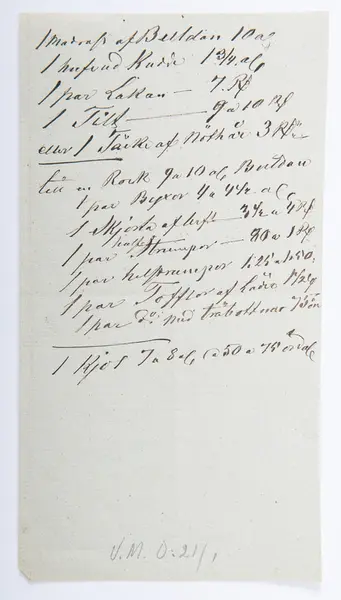 1 Madrass af Buldan 10 a
1 hufvud Kudde 1 3/4 al,
1 par Lakan — 7. Rd
1 Filt — 9 a 10 Rd
eller 1 Täcke af Nöthår 3 Rdr
till en Rock 9 a 10 al, Buldan
1 par Byxor 4 a 4 1/2 al,
1 Skjorta af 3 1/2 a 4 Rd
1 par half Strumpor — 80 a 1 Rd
1 par helstrumpor 1.25 a 1.50.
1 par Tofflor af Läder
1 par Do med träbottnar 75 ör
1 Kjol 7 a 8 al, a 50 a 75 ör al
V. M. O: 21/1